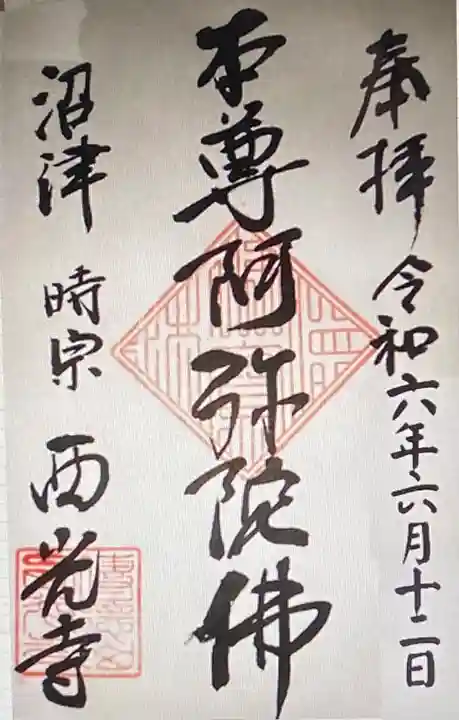 奉拝 令和六年六月十二日
本尊阿弥陀佛
沼津 時宗 西光寺